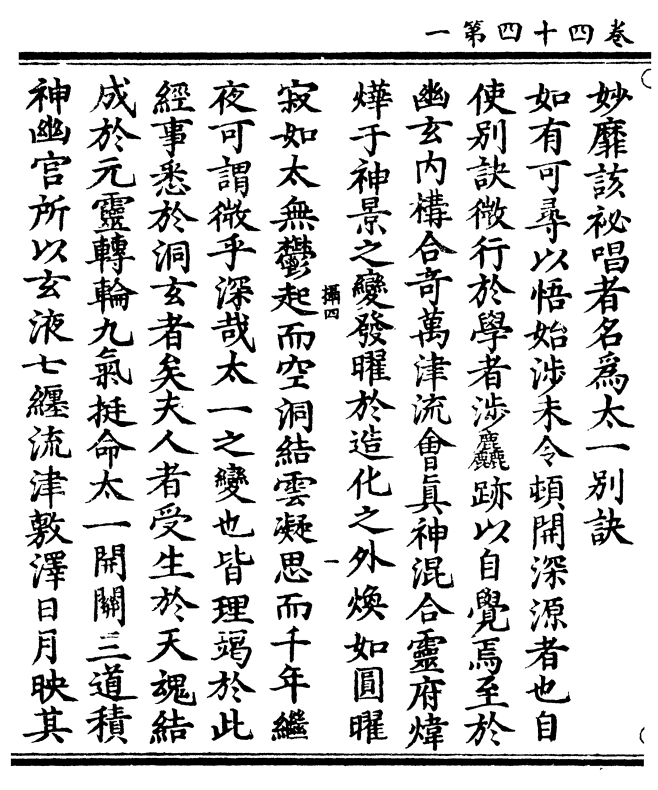 卷四十四第一
妙靡該祕唱者名爲太一別訣
如有可尋以悟始涉未令頓開深源者也自
使別訣微行於學者涉麤跡以自覺焉至於
幽玄內構合奇萬津流會眞神混合靈府煒
燁于神景之變發曜於造化之外煥如圓曜
攝四
一
寂如太無鬱起而空洞結雲凝思而千年繼
夜可謂微乎深哉太一之變也皆理竭於此
經事悉於洞玄者矣夫人者受生於天魂結
成於元靈轉輪九氣挺命太一開關三道積
神幽宮所以玄液七纏流津敷澤日月映其